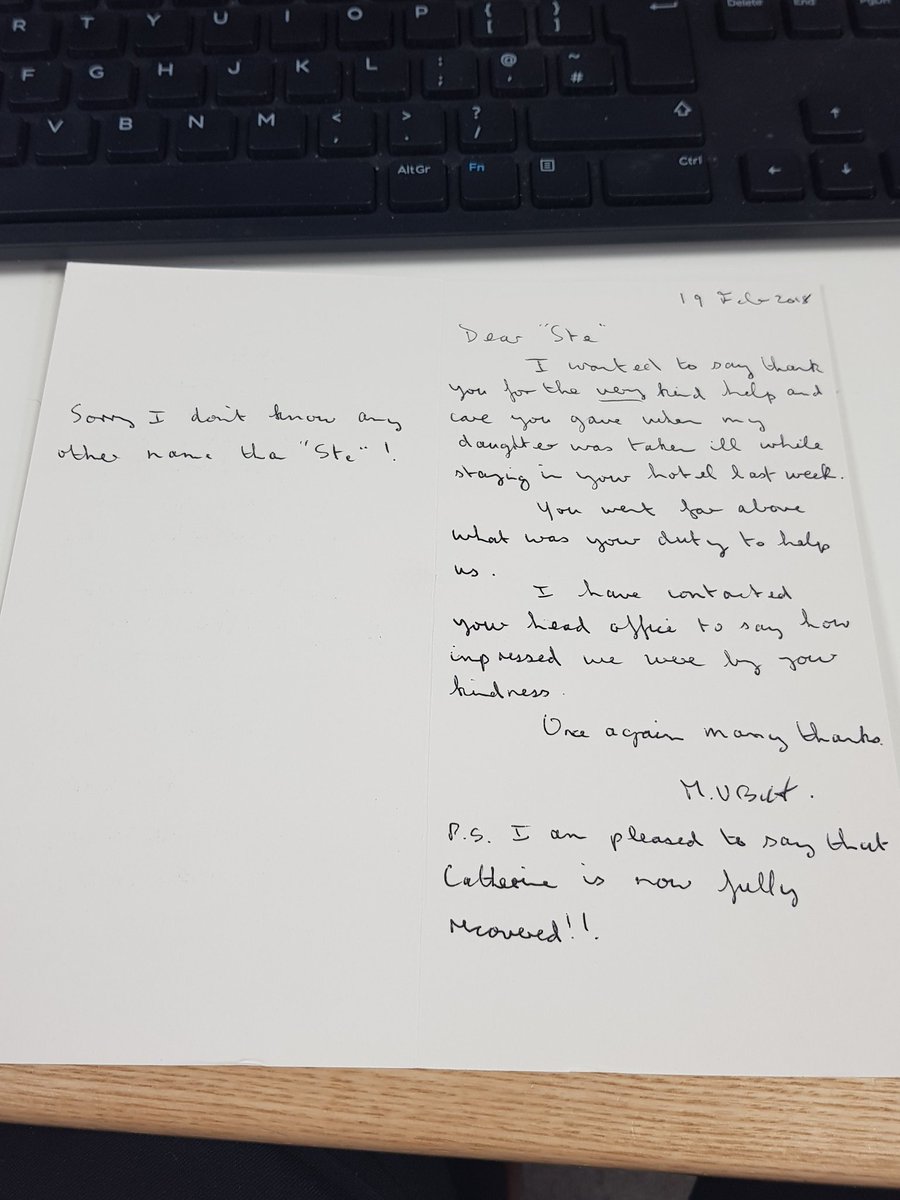 R T Y U I O P { [ } ] Delete End
F G H J K L : ; @ ' ~ #
V B N M < , > . ? /
AltGr Fn Ctrl
Sorry I don't know any
other name tha "Ste" !
19 Feb 2018
Dear "Ste"
I wanted to say thank
you for the very kind help and
care you gave when my
daughter was taken ill while
staying in your hotel last week.
You went far above
what was your duty to help
us.
I have contacted
your head office to say how
impressed we were by your
kindness.
Once again many thanks.
M.V
P.S. I am pleased to say that
Catherine is now fully
recovered!!.